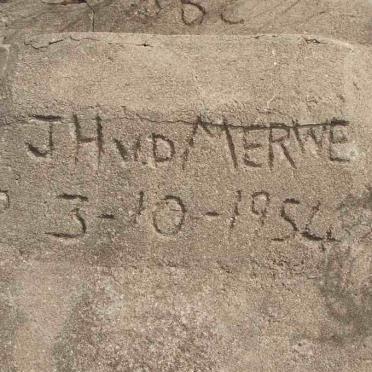 J H v D MERWE
3-10-1954